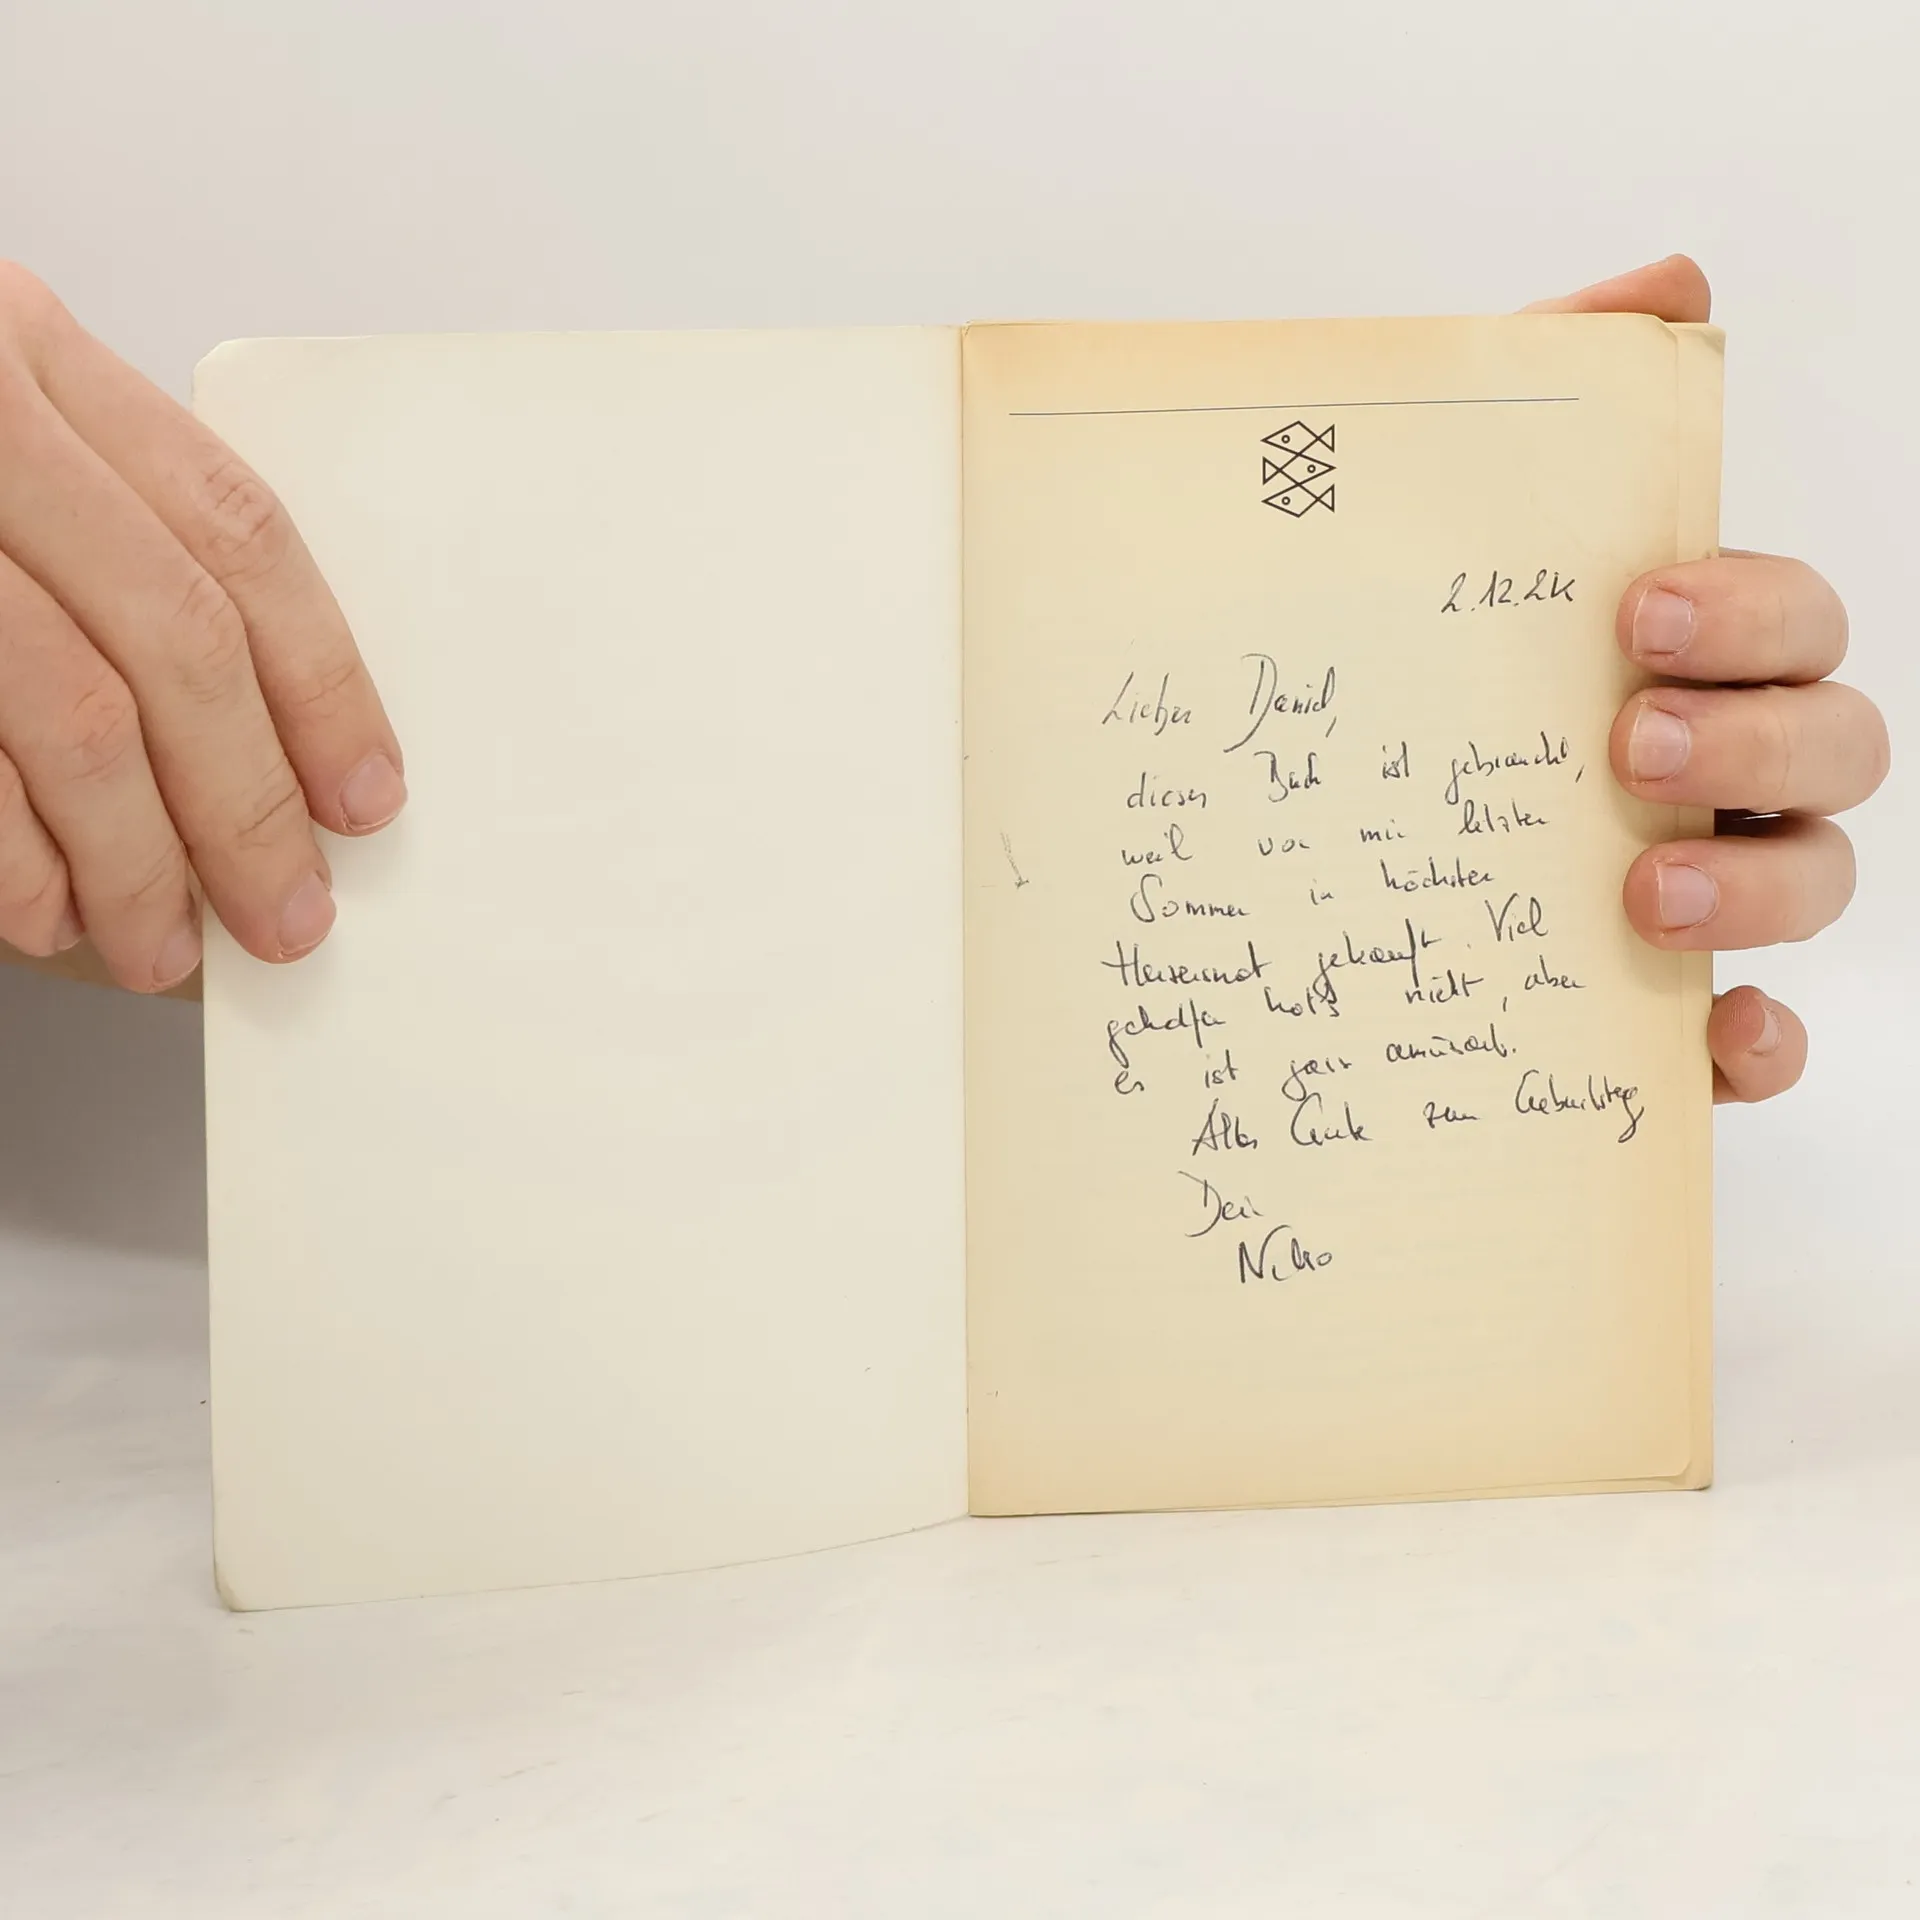 2.12.2K
Lieber Daniel,
dieses Buch ist gebraucht,
weil von mir letzten
Sommer in höchster
Herzensnot gekauft. Viel
geholfen hat's nicht, aber
es ist ganz amüsant.
Alles Gute zum Geburtstag
Dein
Niko